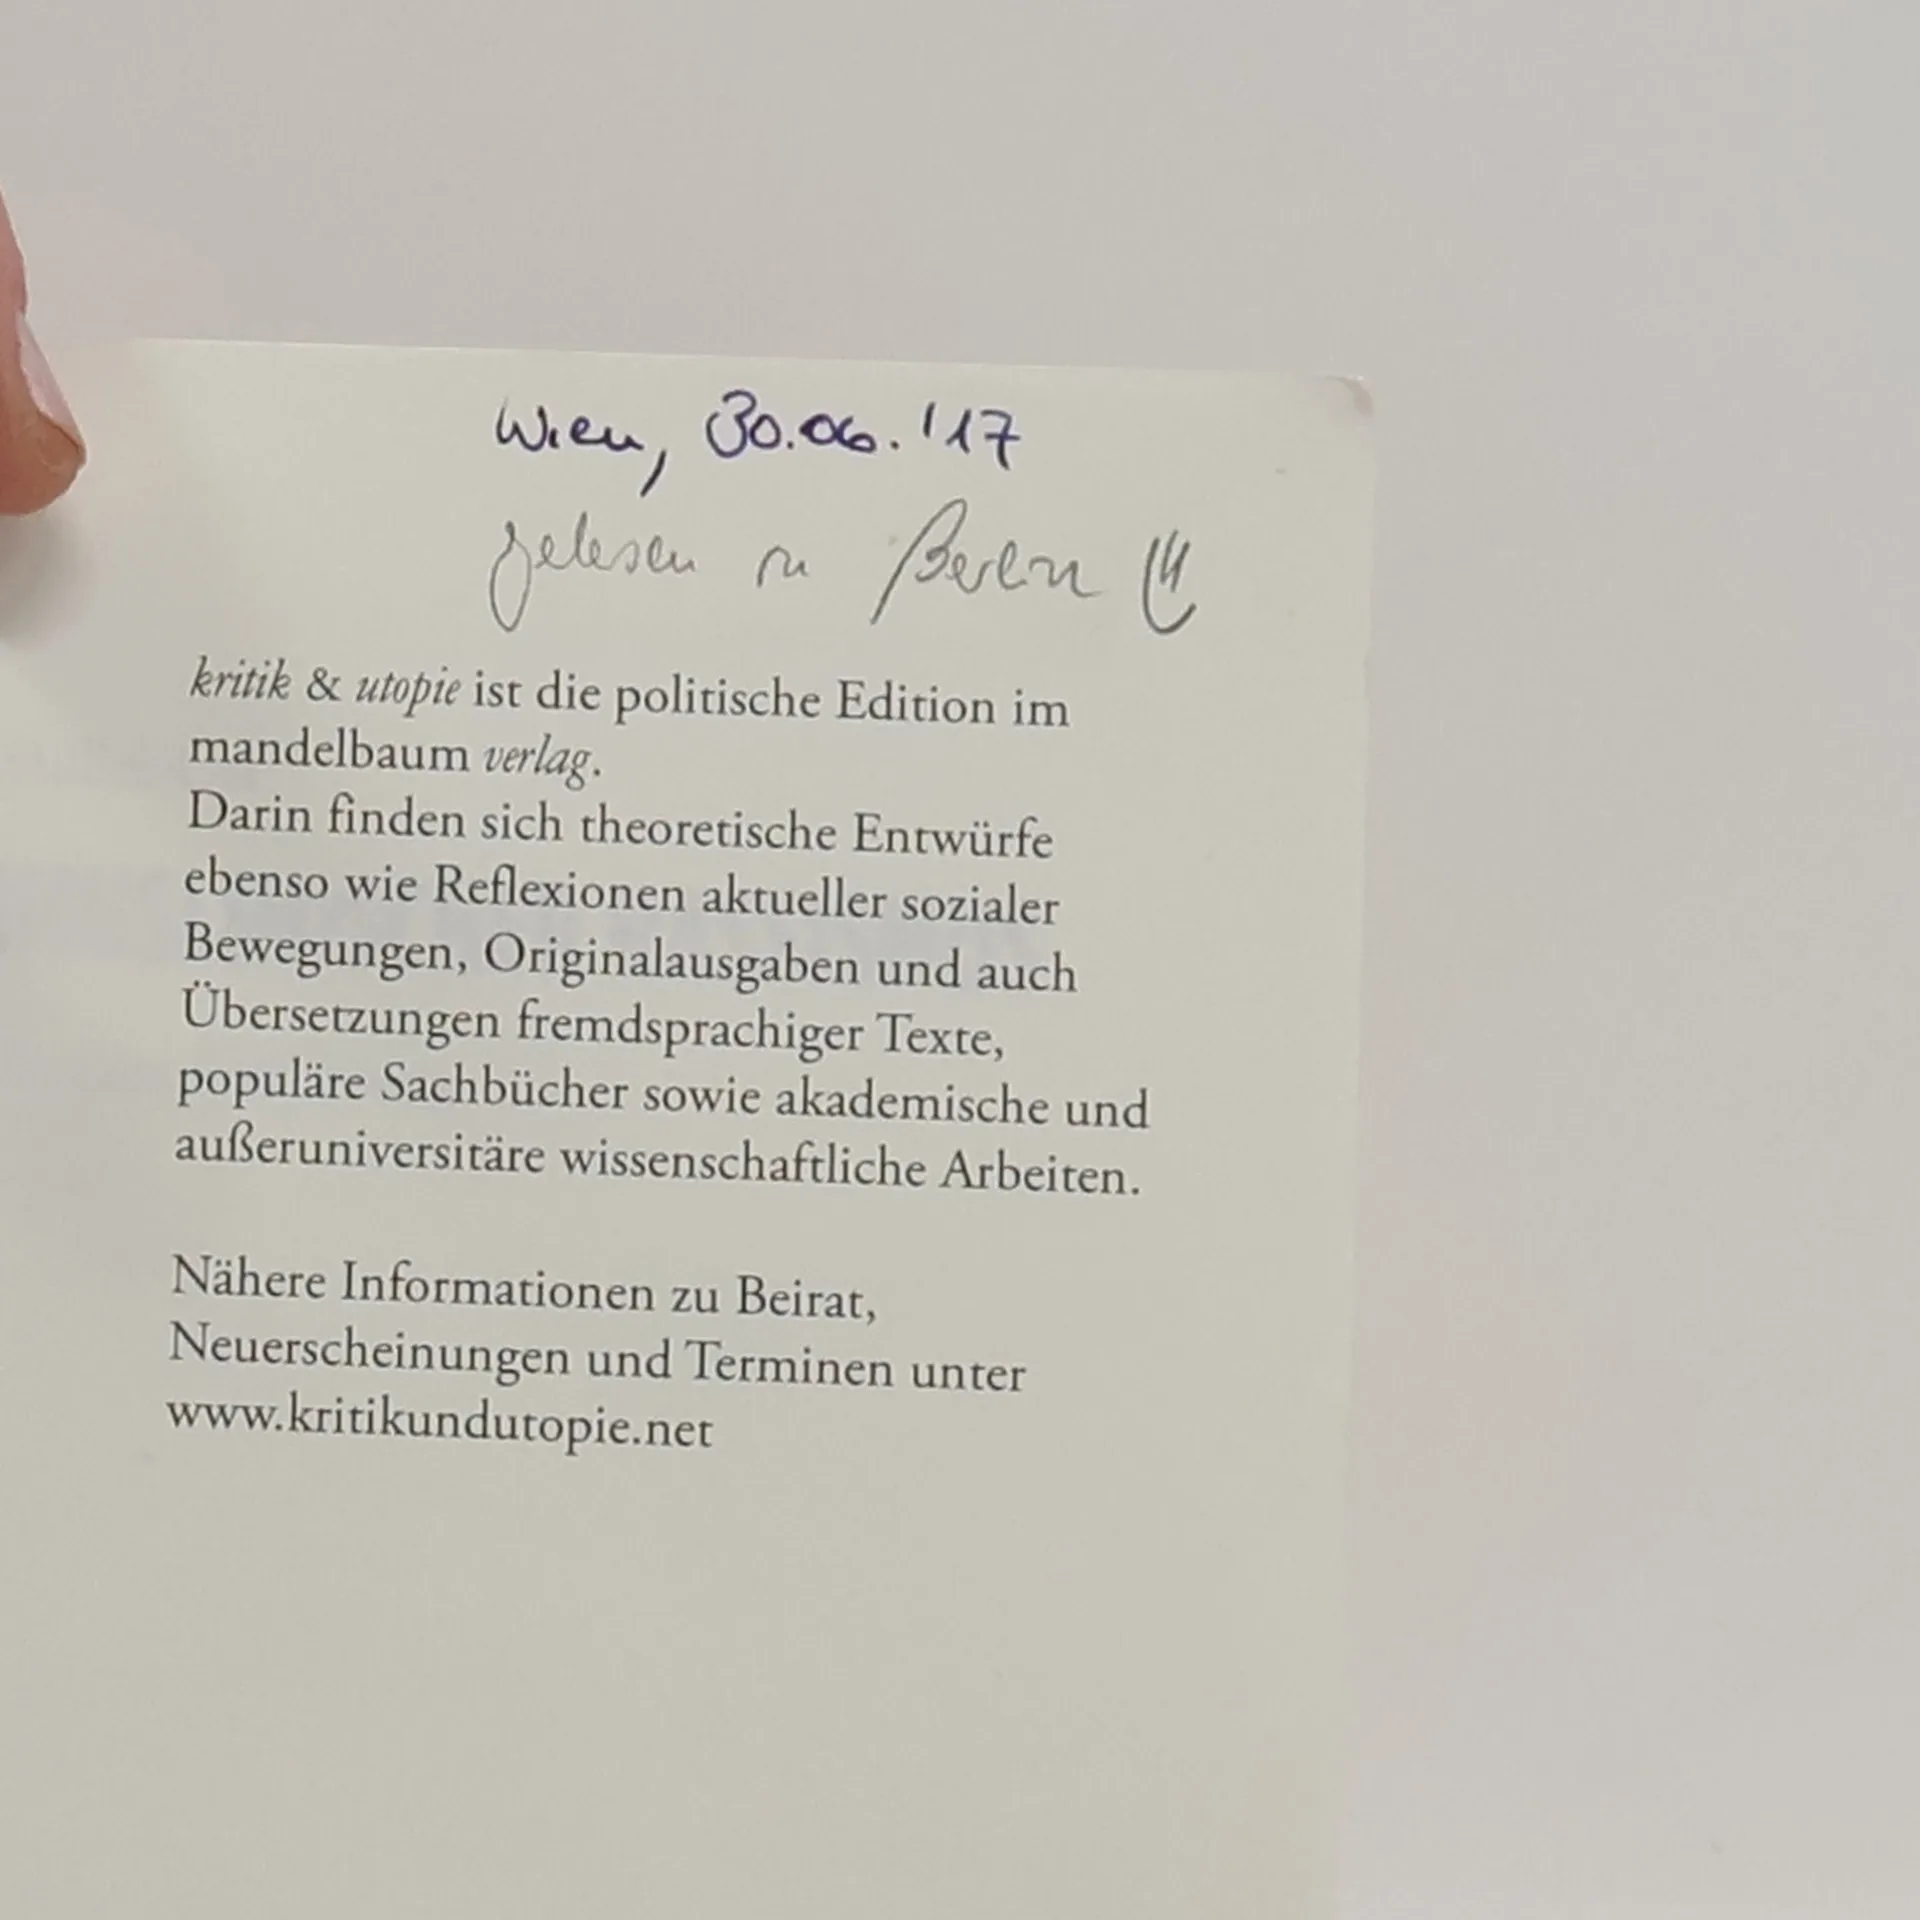 Wien, 30.06.'17
gelesen in Berlin
kritik & utopie ist die politische Edition im
mandelbaum verlag.
Darin finden sich theoretische Entwürfe
ebenso wie Reflexionen aktueller sozialer
Bewegungen, Originalausgaben und auch
Übersetzungen fremdsprachiger Texte,
populäre Sachbücher sowie akademische und
außeruniversitäre wissenschaftliche Arbeiten.
Nähere Informationen zu Beirat,
Neuerscheinungen und Terminen unter
www.kritikundutopie.net